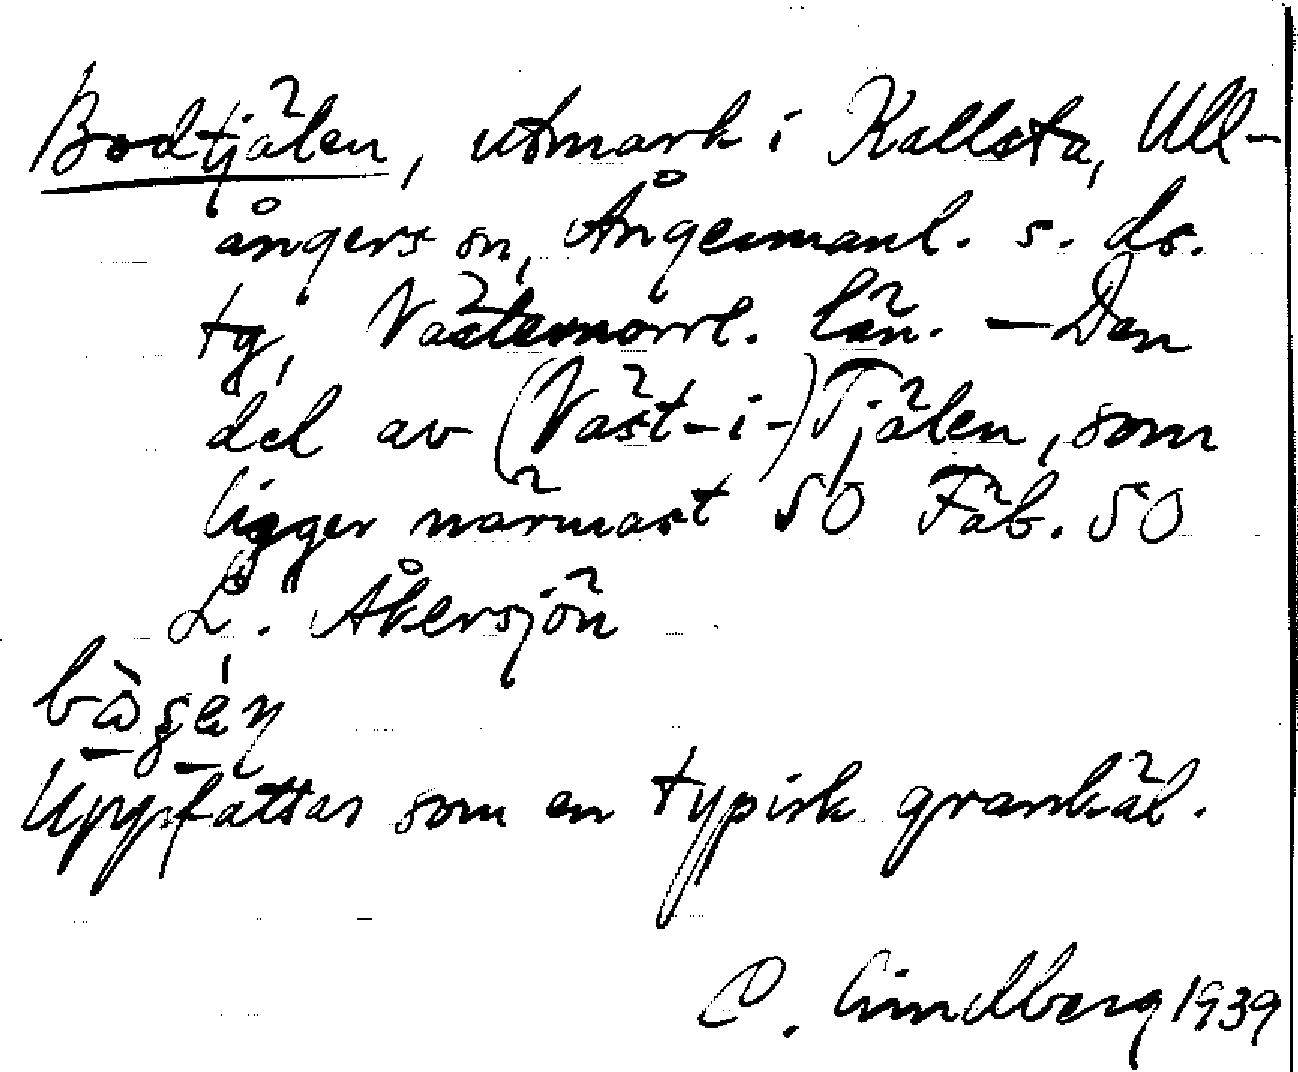 Bodtjälen, utmark i Kallsta, Ull-
ångers sn, Ångermanl. s. ds.
tg, Västernorrl. län. — Den
del av (Väst-i-)Tjälen, som
ligger närmast SO Fäb. SO
L. Åkersjön
Uppfattas som en typisk grankäl.
C. Lindberg 1939